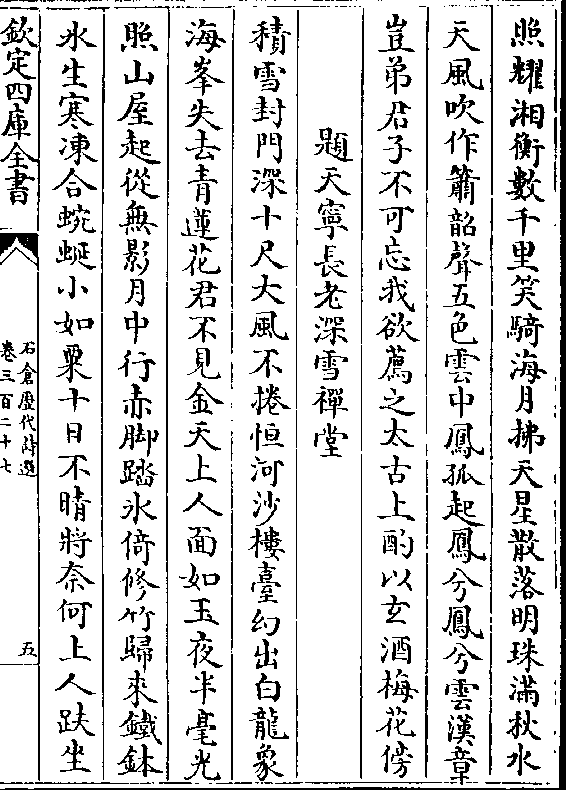 照耀湘衡數千里笑騎海月拂天星散落明珠滿秋水
天風吹作簫韶聲五色雲中鳳孤起鳳兮鳳兮雲漢章
豈弟君子不可忘我欲薦之太古上酌以玄酒梅花傍
題天寧長老深雪禪堂
積雪封門深十尺大風不捲恒河沙樓臺幻出白龍象
海峯失去青蓮花君不見金天上人面如玉夜半毫光
照山屋起從無影月中行赤脚踏氷倚修竹歸來鐵鉢
氷生寒凍合蜿蜒小如粟十日不晴將奈何上人趺坐
欽定四庫全書
石倉歷代詩選
卷三百二十七
五